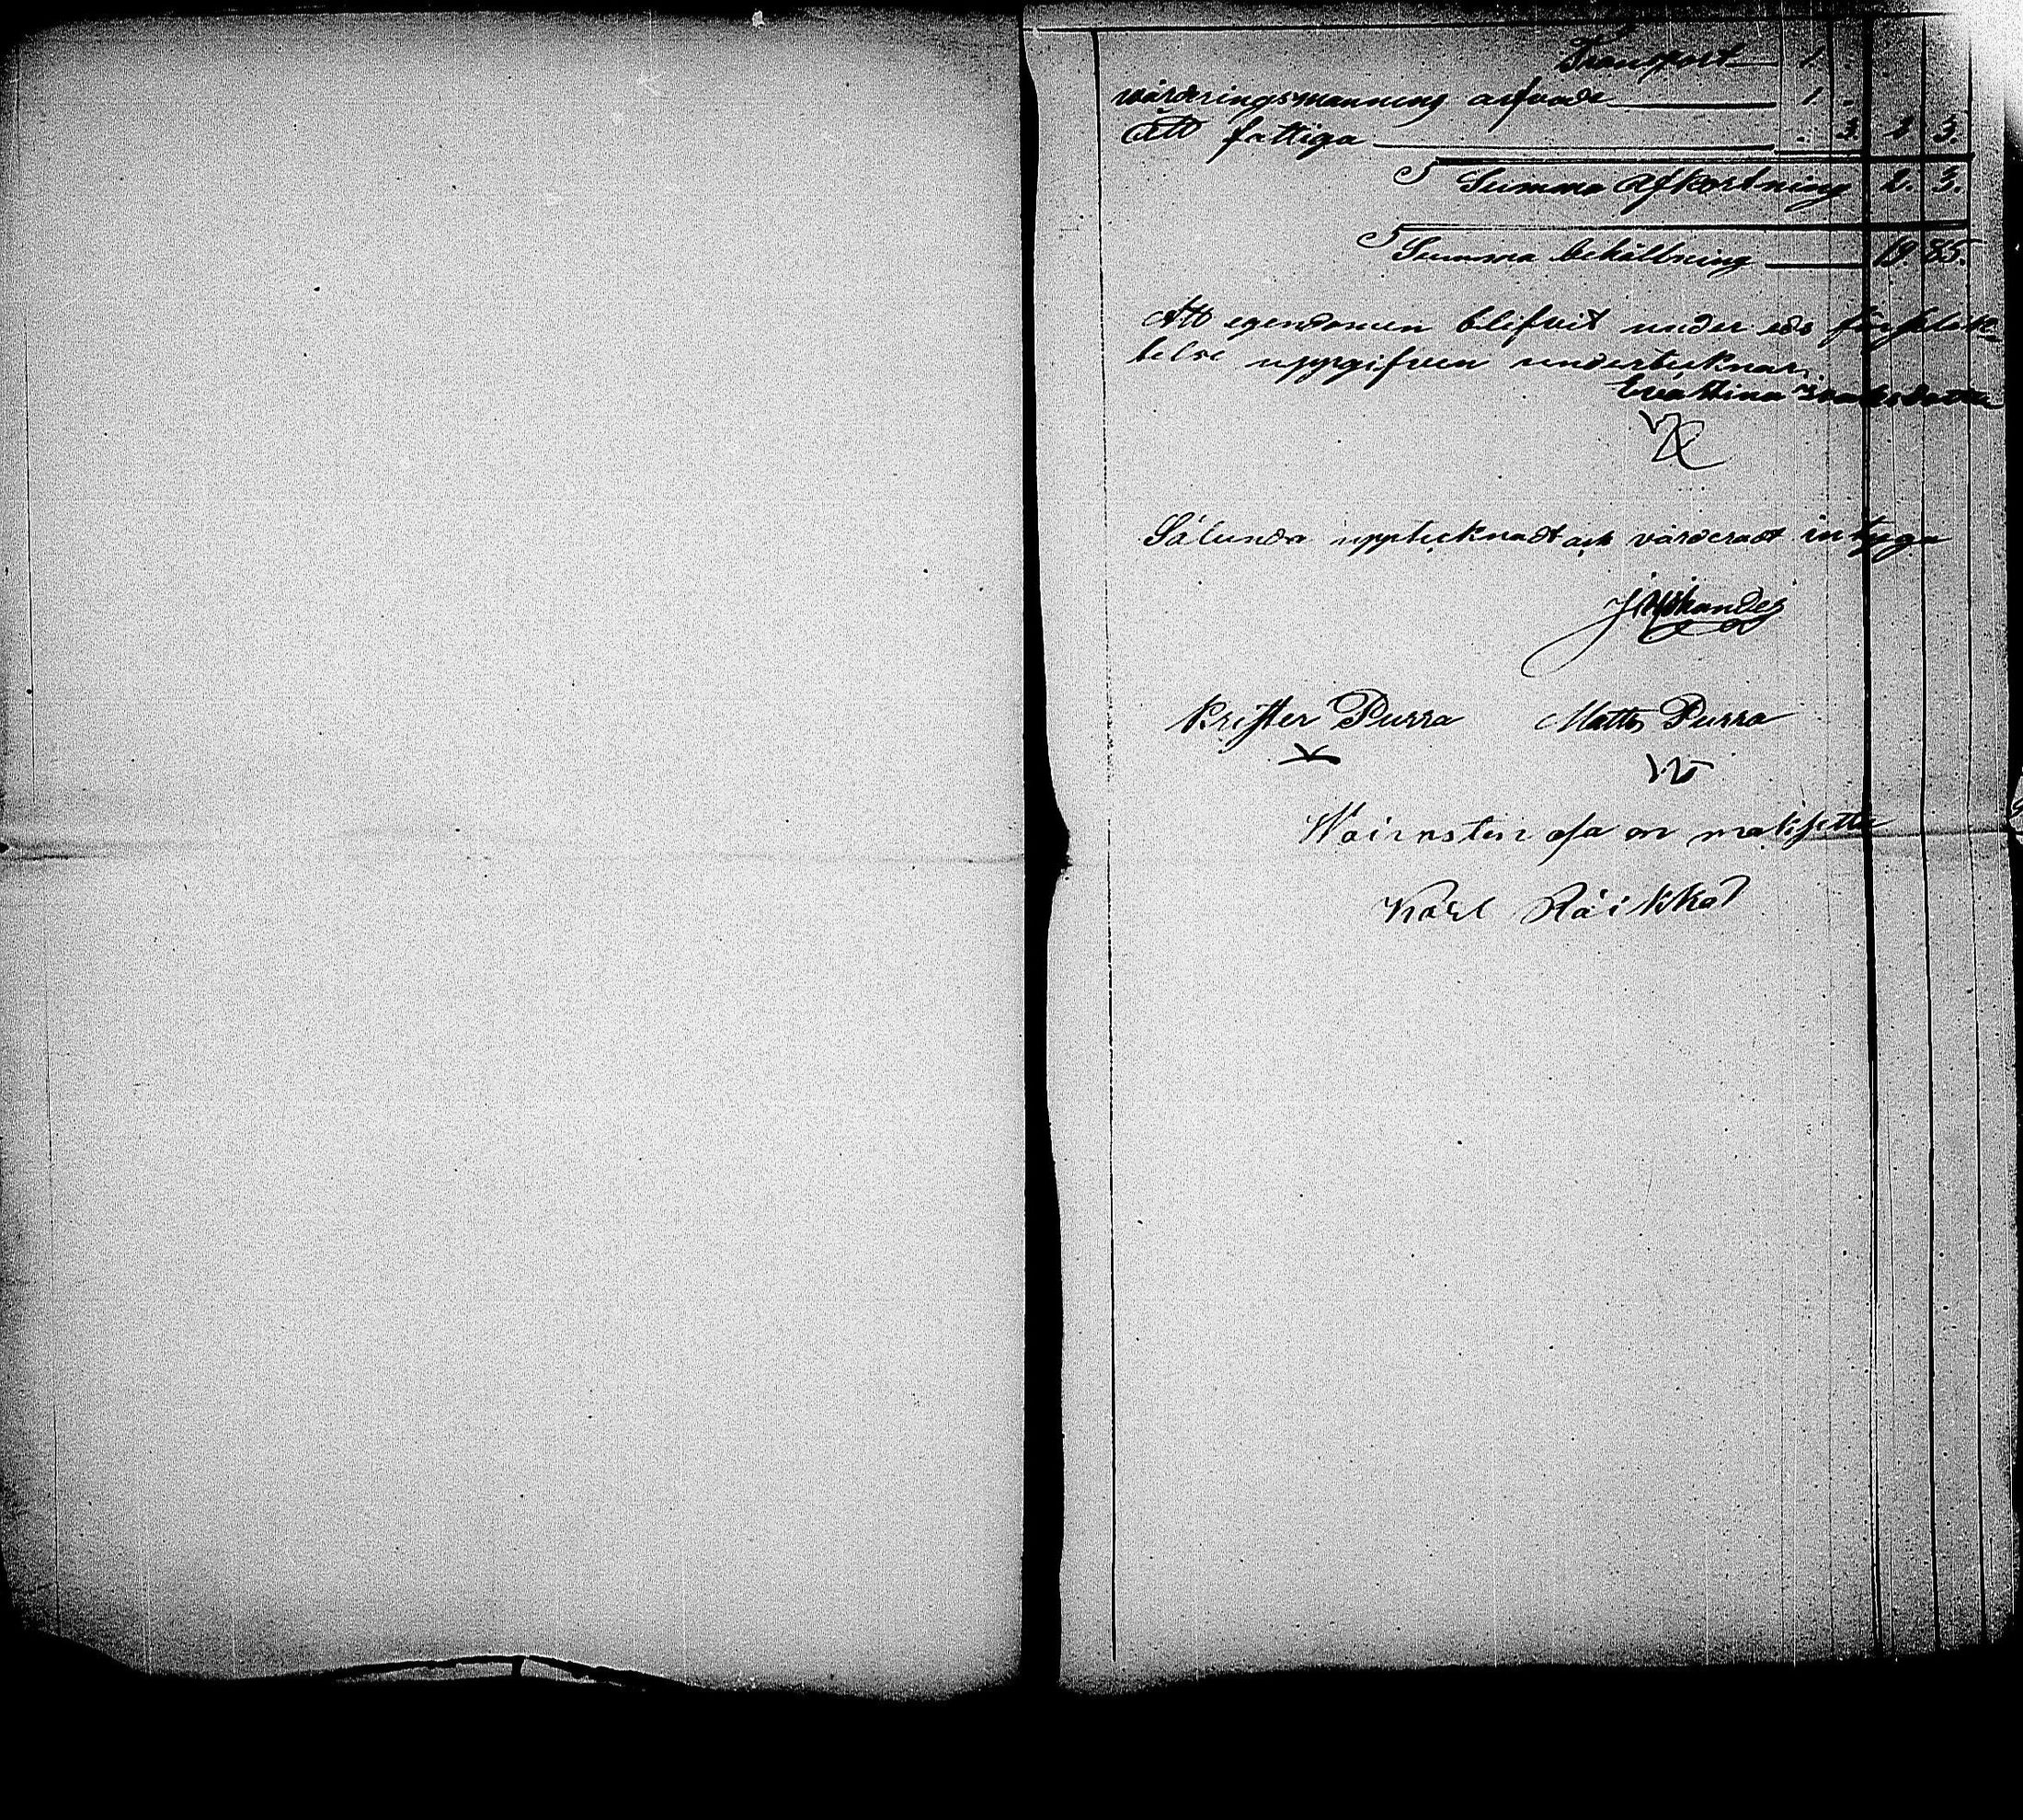 Transport 1 .
wärderingsmanning arfvode 1 .
Till fattiga . 3. 2 3.
Summa Afkortning 2. 3.
Summa behållning 19 85.
Att egendomen blifvit under eds förplick-
telse uppgifven undertecknar,
Eva Stina Isaksdotter
Sålunda upptecknadt och värderadt intyga
Krister Purra Matts Purra
Waivasten osa on maksettu
Karl Räikkä